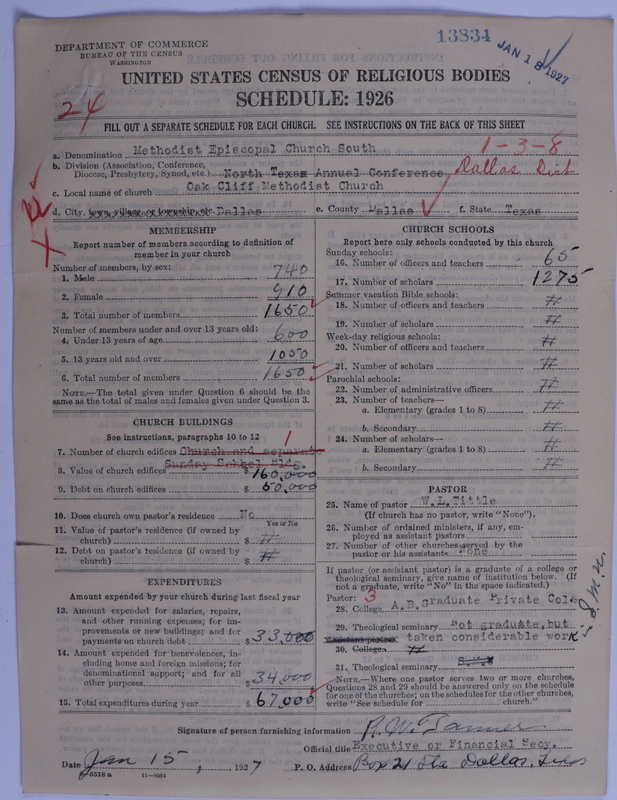 13834
JAN 18 1927
DEPARTMENT OF COMMERCE
BUREAU OF THE CENSUS
WASHINGTON
UNITED STATES CENSUS OF RELIGIOUS BODIES
SCHEDULE: 1926
24
FILL OUT A SEPARATE SCHEDULE FOR EACH CHURCH. SEE INSTRUCTIONS ON THE BACK OF THIS SHEET
1-3-8
a. Denomination Methodist Episcopal Church South
b. Division (Association, Conference, Diocese, Presbytery, Synod, etc.) North Texas Annual Conference Dallas Dist
c. Local name of church Oak Cliff Methodist Church
d. City, town, village, or township, etc. Dallas e. County Dallas f. State Texas
MEMBERSHIP
Report number of members according to definition of
member in your church
Number of members, by sex:
1. Male 740
2. Female 910
3. Total number of members 1650
Number of members under and over 13 years old:
4. Under 13 years of age 600
5. 13 years old and over 1050
6. Total number of members 1650
NOTE.—The total given under Question 6 should be the
same as the total of males and females given under Question 3.
CHURCH BUILDINGS
See instructions, paragraphs 10 to 12
1
7. Number of church edifices Church and separate
Sunday School Bldg.
8. Value of church edifices $ 160,000
9. Debt on church edifices $ 50,000
10. Does church own pastor's residence? No
Yes or No
11. Value of pastor's residence (if owned by
church) $ #
12. Debt on pastor's residence (if owned by
church) $ #
EXPENDITURES
Amount expended by your church during last fiscal year
13. Amount expended for salaries, repairs,
and other running expenses; for im-
provements or new buildings; and for
payments on church debt $ 33,000
14. Amount expended for benevolences, in-
cluding home and foreign missions; for
denominational support; and for all
other purposes $ 34,000
15. Total expenditures during year $ 67,000
CHURCH SCHOOLS
Report here only schools conducted by this church
Sunday schools:
16. Number of officers and teachers 65
17. Number of scholars 1275
Summer vacation Bible schools:
18. Number of officers and teachers #
19. Number of scholars #
Week-day religious schools:
20. Number of officers and teachers #
21. Number of scholars #
Parochial schools:
22. Number of administrative officers #
23. Number of teachers—
a. Elementary (grades 1 to 8) #
b. Secondary #
24. Number of scholars—
a. Elementary (grades 1 to 8) #
b. Secondary #
PASTOR
25. Name of pastor W.L.Tittle
(If church has no pastor, write "None").
26. Number of ordained ministers, if any, em-
ployed as assistant pastors
27. Number of other churches served by the
pastor or his assistants None
If pastor (or assistant pastor) is a graduate of a college or
theological seminary, give name of institution below. (If
not a graduate, write "No" in the space indicated.)
Pastor: 3
28. College A.B. graduate Private Col.
29. Theological seminary Not graduate, but
Assistant pastor: taken considerable work
30. College #
31. Theological seminary
NOTE.—Where one pastor serves two or more churches,
Questions 28 and 29 should be answered only on the schedule
for one of the churches; on the schedules for the other churches,
write "See schedule for church."
Signature of person furnishing information
Official title Executive or Financial Secy.
Date Jan 15, 1927 P. O. Address Box 21 Sta Dallas, Texas
8518 a 11—9034